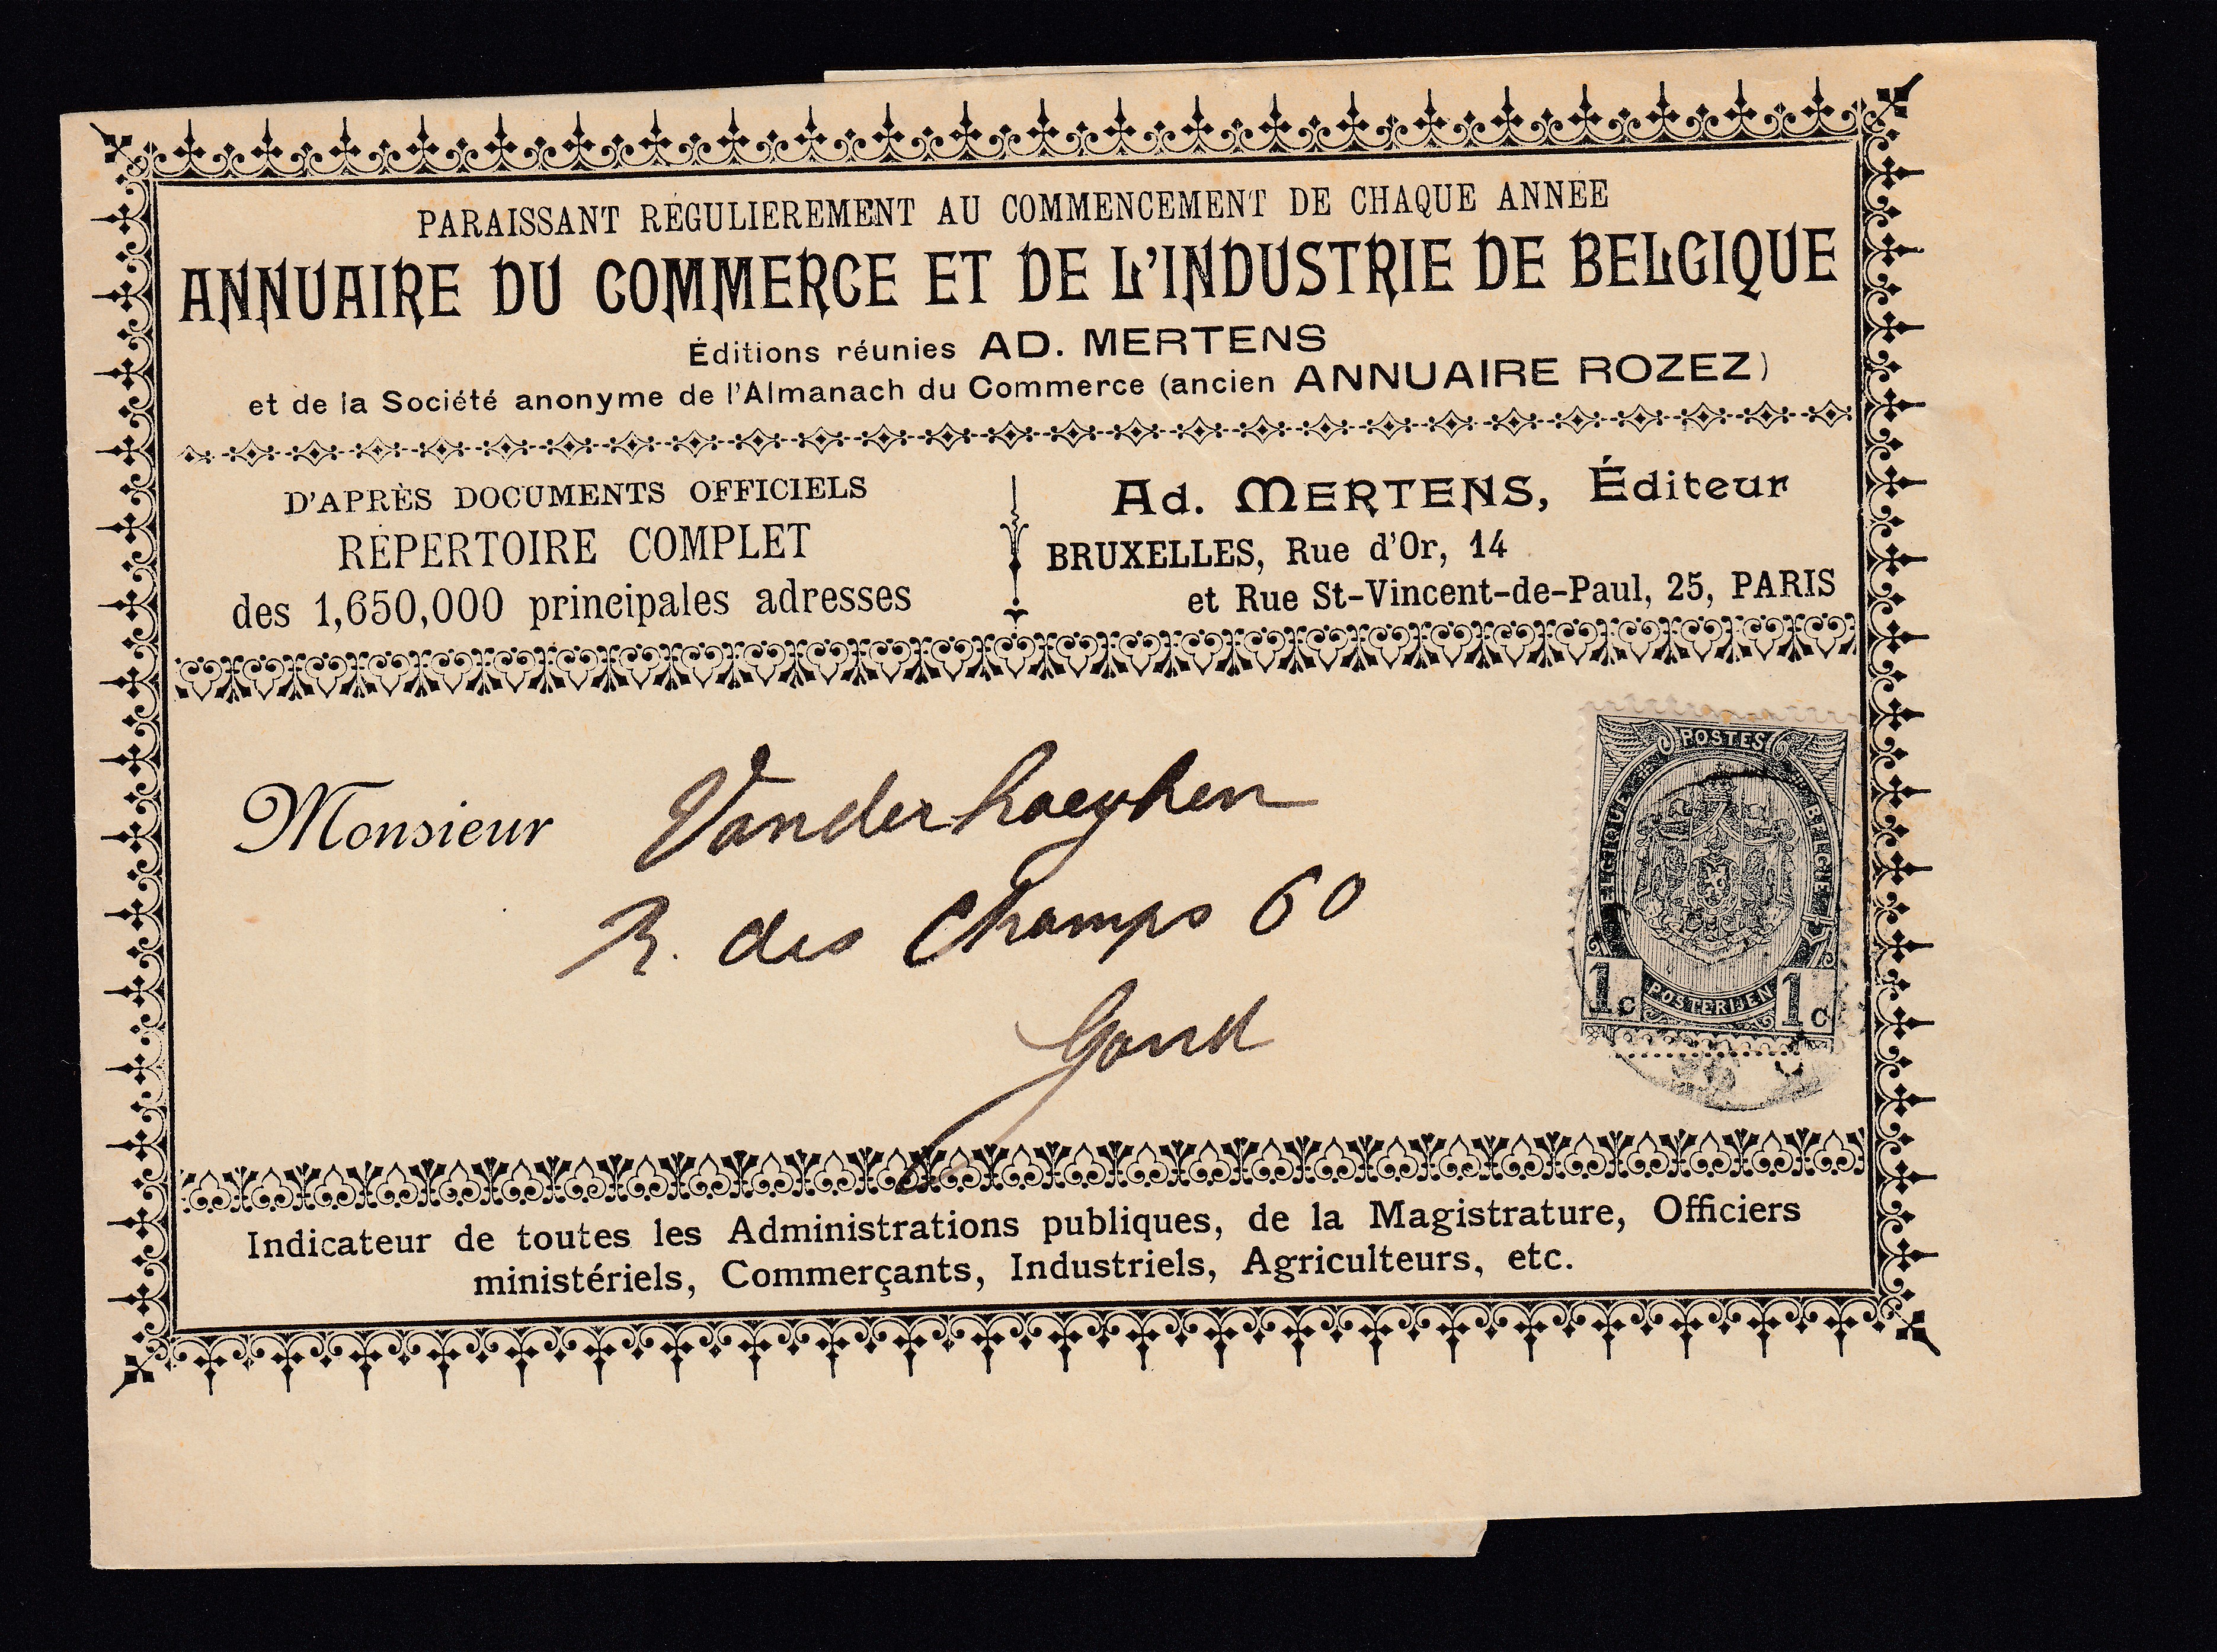 PARAISSANT RÉGULIEREMENT AU COMMENCEMENT DE CHAQUE ANNÉE
ANNUAIRE DU COMMERCE ET DE L'INDUSTRIE DE BELGIQUE
Éditions réunies AD. MERTENS
et de la Société anonyme de l'Almanach du Commerce (ancien ANNUAIRE ROZEZ)
D'APRÈS DOCUMENTS OFFICIELS
RÉPERTOIRE COMPLET
des 1,650,000 principales adresses
Ad. MERTENS, Éditeur
BRUXELLES, Rue d'Or, 14
et Rue St-Vincent-de-Paul, 25, PARIS
Monsieur Vanderhaeghen
R. des Champs 60
Gand
POSTES
BELGIQUE
BELGIË
1c POSTERIJEN 1c
Indicateur de toutes les Administrations publiques, de la Magistrature, Officiers
ministériels, Commerçants, Industriels, Agriculteurs, etc.